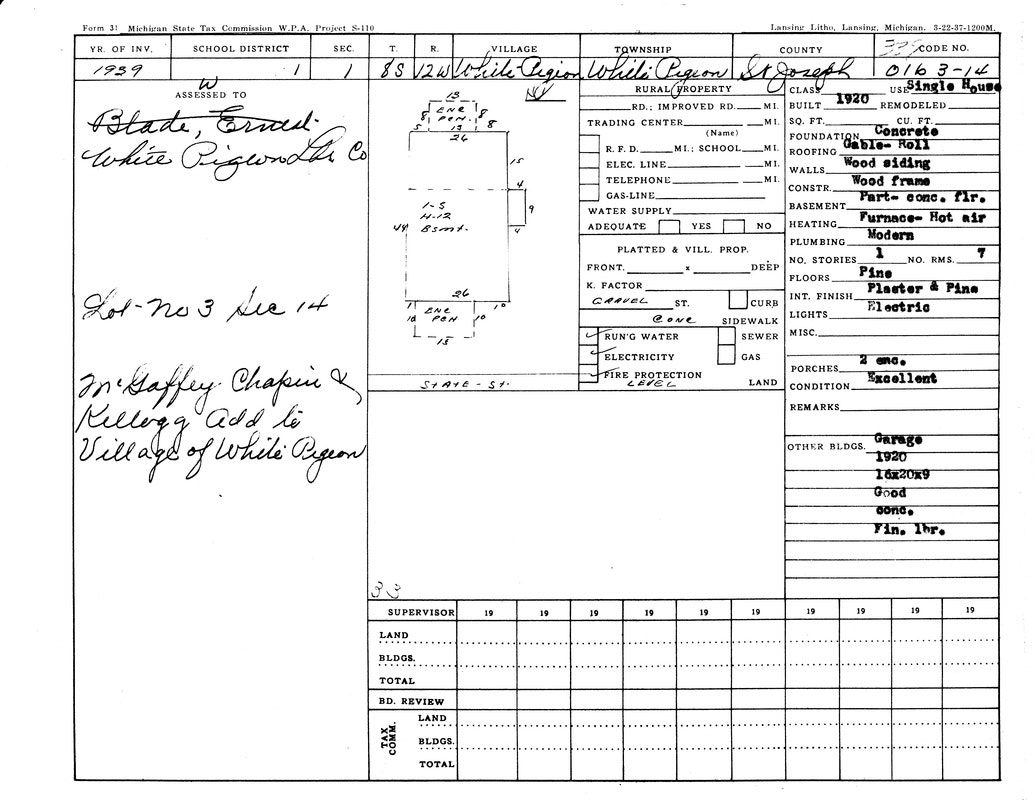 Form 31 Michigan State Tax Commission W.P.A. Project S-110
Lansing Litho, Lansing, Michigan. 3-22-37-1200M.
YR. OF INV. SCHOOL DISTRICT SEC. T. R. VILLAGE TOWNSHIP COUNTY CODE NO.
1939 W 1 1 8S 12W White Pigeon White Pigeon St Joseph 0163-14
ASSESSED TO
Blade, Ernest
White Pigeon Lbr Co
Lot-No 3 Sec 14
McGaffey Chapin &
Kellogg Add to
Village of White Pigeon
13
ENC
PCH.
8 8
5 13 8
26
15
4
9
4
1-S
H-12
Bsmt.
44
26
1 10
10 ENC PCH 10
15
STATE-ST.
33
RURAL PROPERTY
RD.; IMPROVED RD. MI.
TRADING CENTER MI.
(Name)
R. F. D. MI.; SCHOOL MI.
ELEC. LINE MI.
TELEPHONE MI.
GAS-LINE
WATER SUPPLY
ADEQUATE YES NO
PLATTED & VILL. PROP.
FRONT. x DEEP
K. FACTOR
GRAVEL ST. CURB
CONC SIDEWALK
RUN'G WATER SEWER
ELECTRICITY GAS
FIRE PROTECTION
LEVEL LAND
CLASS USE Single House
BUILT 1920 REMODELED
SQ. FT. CU. FT.
FOUNDATION Concrete
ROOFING Gable- Roll
WALLS Wood siding
CONSTR. Wood frame
BASEMENT Part- conc. flr.
HEATING Furnace- Hot air
PLUMBING Modern
NO. STORIES 1 NO. RMS. 7
FLOORS Pine
INT. FINISH Plaster & Pine
LIGHTS Electric
MISC.
PORCHES 2 enc.
CONDITION Excellent
REMARKS
OTHER BLDGS. Garage
1920
16x20x9
Good
conc.
Fin. lbr.
SUPERVISOR 19 19 19 19 19 19 19 19 19 19
LAND
BLDGS.
TOTAL
BD. REVIEW
TAX COMM.
LAND
BLDGS.
TOTAL